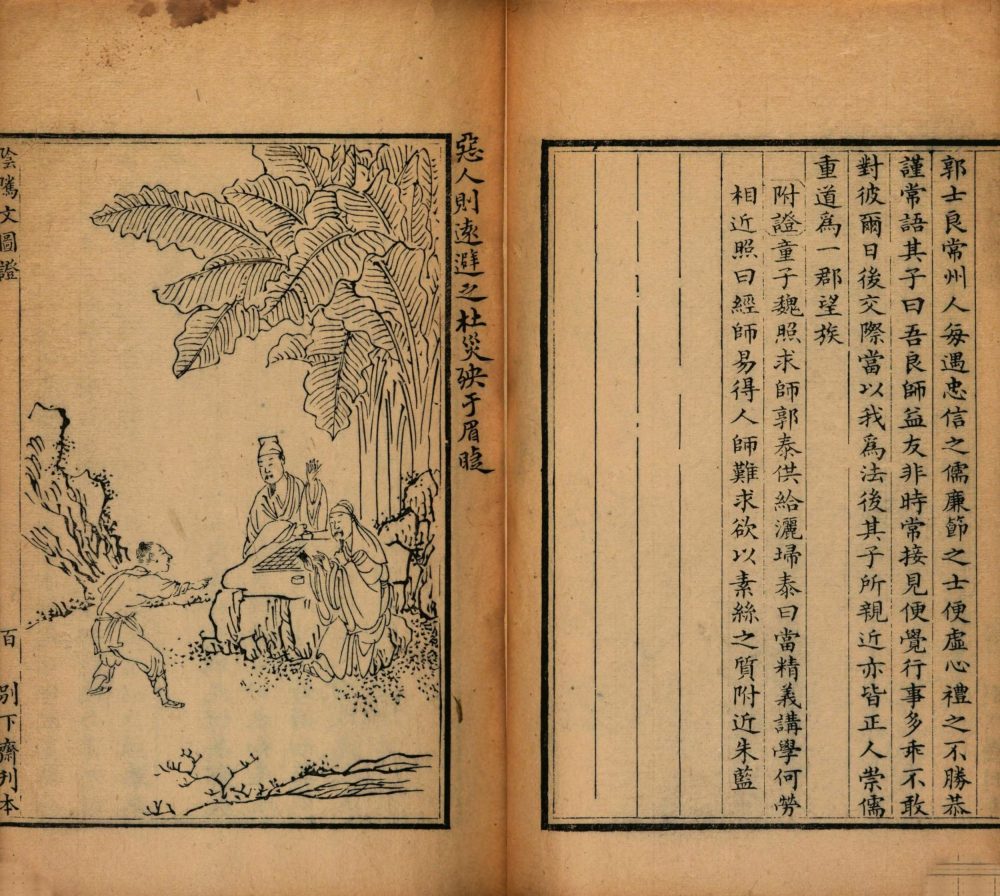 郭士良常州人每遇忠信之儒廉節之士便虛心禮之不勝恭
謹常語其子曰吾良師益友非時常接見便覺行事多乖不敢
對彼爾日後交際當以我為法後其子所親近亦皆正人崇儒
重道為一郡望族
附證童子魏照求師郭泰供給灑埽泰曰當精義講學何勞
相近照曰經師易得人師難求欲以素絲之質附近朱藍
惡人則遠避之杜災殃于眉睫
陰騭文圖證
百
別下齋刋本